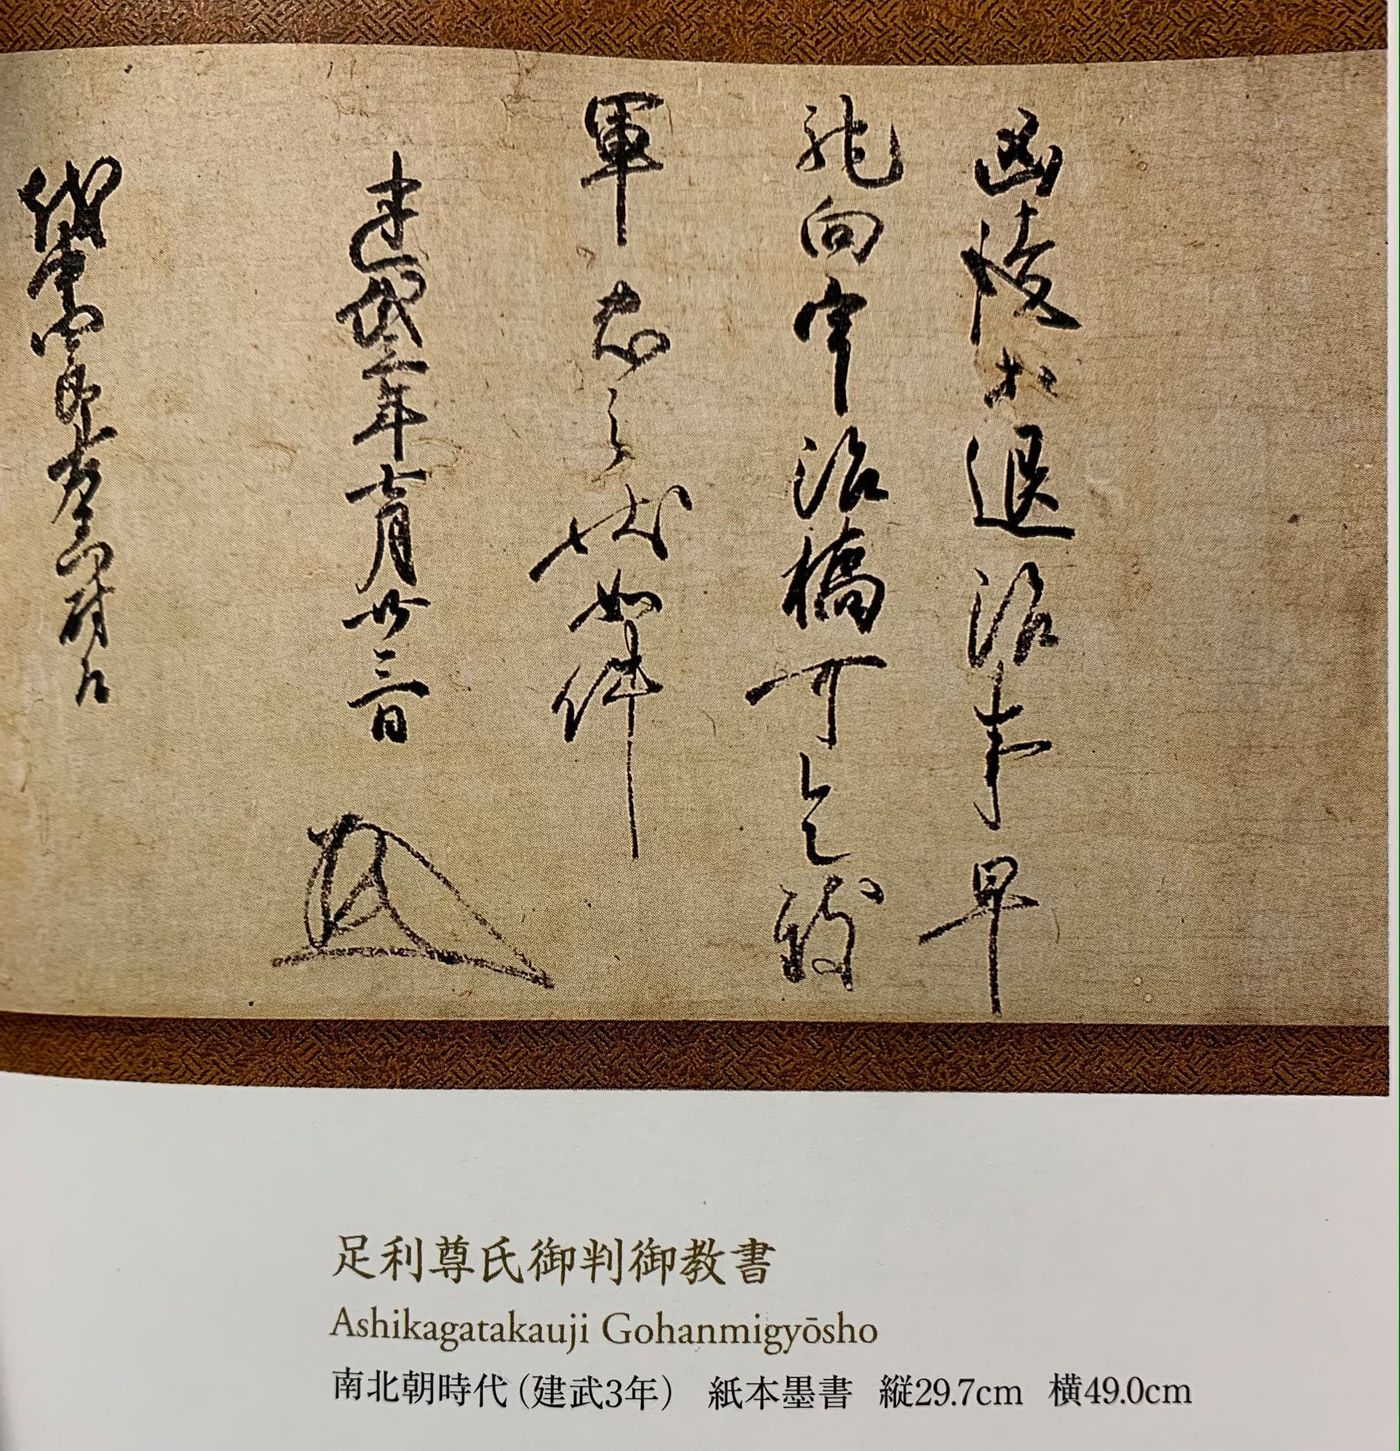 凶徒等退治事早
馳向宇治橋可令致
軍忠之状如件
建武三年七月廿三日
四郎左衛門尉殿
足利尊氏御判御教書
Ashikagatakauji Gohanmigyōsho
南北朝時代（建武3年） 紙本墨書 縦29.7cm 横49.0cm